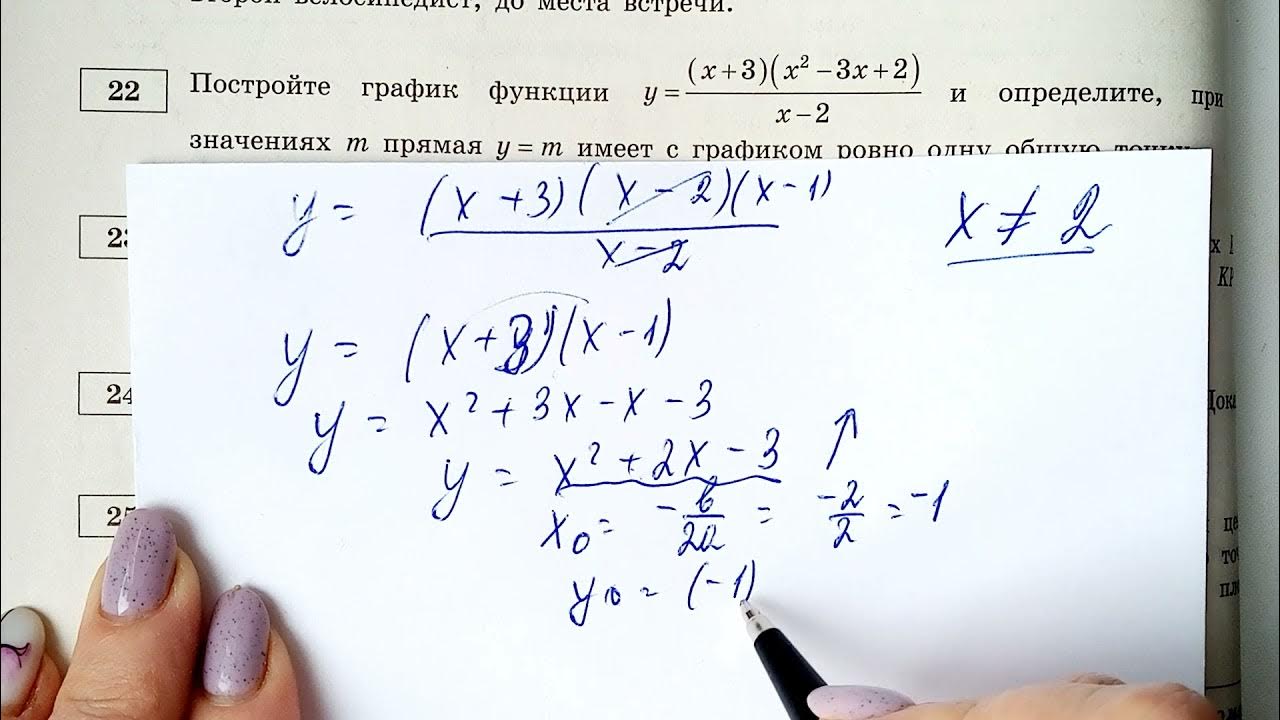 второй велосипедист, до места встречи.
22 Постройте график функции y = (x+3)(x² − 3x + 2) / (x − 2) и определите, при
значениях m прямая y = m имеет с графиком ровно одну общую точку
y = (x + 3)(x − 2)(x − 1) / (x − 2)
x ≠ 2
y = (x + 3)(x − 1)
y = x² + 3x − x − 3
y = x² + 2x − 3 ↑
x₀ = −b/2a = −2/2 = −1
y₀ = (−1)
24